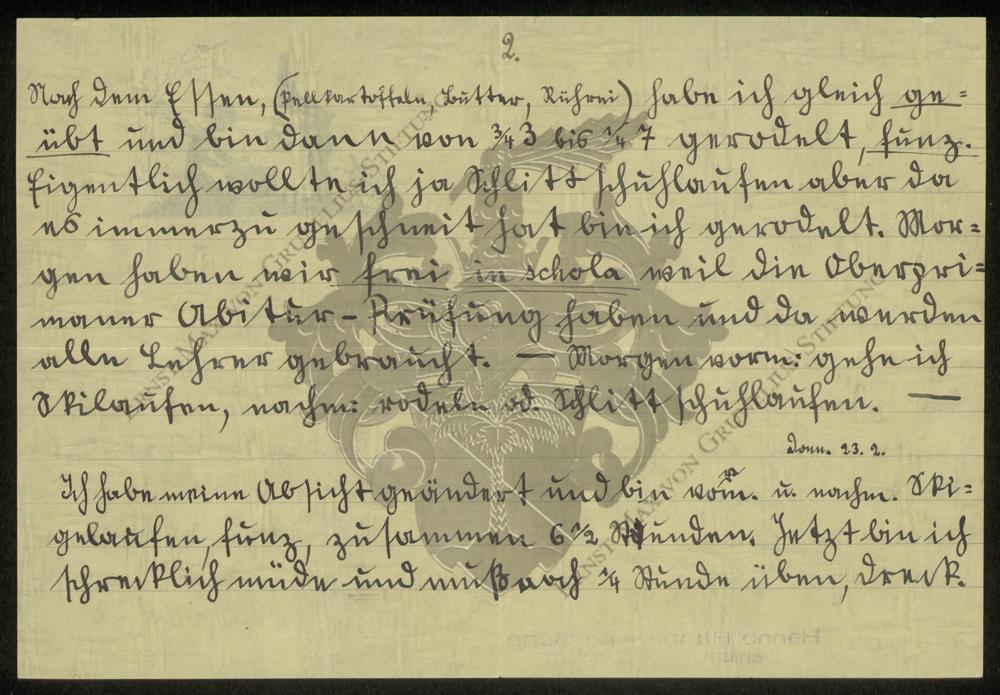 2.
Nach dem Essen, (Pellkartoffeln, Butter, Rührei) habe ich gleich ge=
übt und bin dann von 3/4 3 bis 1/4 7 gerodelt, funz.
Eigentlich wollte ich ja Schlittschuhlaufen aber da
es immerzu geschneit hat bin ich gerodelt. Mor=
gen haben wir frei in schola weil die Oberpri=
maner Abitur-Prüfung haben und da werden
alle Lehrer gebraucht. — Morgen vorm: gehe ich
Skilaufen, nachm: rodeln od. Schlittschuhlaufen. —
Donn. 23. 2.
Ich habe meine Absicht geändert und bin vorm. u. nachm. Ski=
gelaufen, funz, zusammen 6 1/2 Stunden. Jetzt bin ich
schrecklich müde und muß noch 3/4 Stunde üben, Dreck.
ERNST MAX VON GRUNELIUS-STIFTUNG
ERNST MAX VON GRUNELIUS STIFTUNG